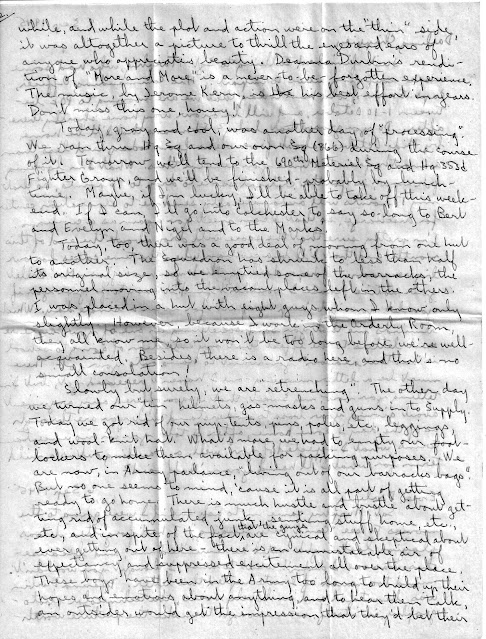 while, and while the plot and action were on the "thin" side,
it was altogether a picture to thrill the eyes and ears of
anyone who appreciates beauty. Deanna Durbin's rendi-
tion of "More and More" is a never-to-be-forgotten experience.
The music by Jerome Kern, is his best effort in years.
Don't miss this one, honey!
Today, gray and cool, was another day of "processing".
We ran thru Hq Sq and our own Sq (366) during the course
of it. Tomorrow we'll tend to the 690th Materiel Sq and Hq 353d
Fighter Group, and we'll be finished probably by lunch-
time. Maybe, if I'm lucky, I'll be able to take off this week-
end. If I can, I'll go into Colchester to say so-long to Bert
and Evelyn and Nigel and to the Marks.
Today, too, there was a good deal of moving from one hut
to another. The squadron has shrunk to less than half
its original size, so we emptied some of the barracks, the
personnel moving into the vacant places left in the others.
I was placed in a hut with eight guys whom I know only
slightly. However, because I work in the Orderly Room,
they all know me, so it won't be too long before we're well-
acquainted. Besides, there is a radio here, and that's no
small consolation!
Slowly but surely, we are "retrenching". The other day
we turned our "tin" helmets, gas-masks and guns in to Supply.
Today we got rid of our pup-tents, pegs, poles, etc., leggings,
and wool-knit hat. What's more, we had to empty our foot-
lockers to make them available for packing purposes. We
are now, in Army parlance, "living out of our barracks bags".
But no one seems to mind, cause it is all part of getting
ready to go home. There is much hustle and bustle about get-
ting rid of accumulated junk, sending stuff home, etc.,
etc., and in spite of the fact that the guys are cynical and skeptical about
ever getting out of here - there is an unmistakable air of
expectancy and suppressed excitement all over the place.
These boys have been in the Army too long to build up their
hopes and emotions about anything, and to hear them talk,
an outsider would get the impression that they'd bet their